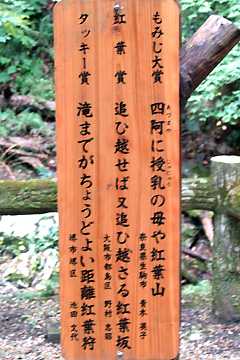 もみじ大賞　四阿に授乳の母や紅葉山
あずまや　じゅにゅう
奈良県生駒市　青木　英子
紅葉賞　追ひ越せば又追ひ越さる紅葉坂
大阪市都島区　野村　忠昭
タッキー賞　滝までがちょうどよい距離紅葉狩
堺市堺区　池田　文代